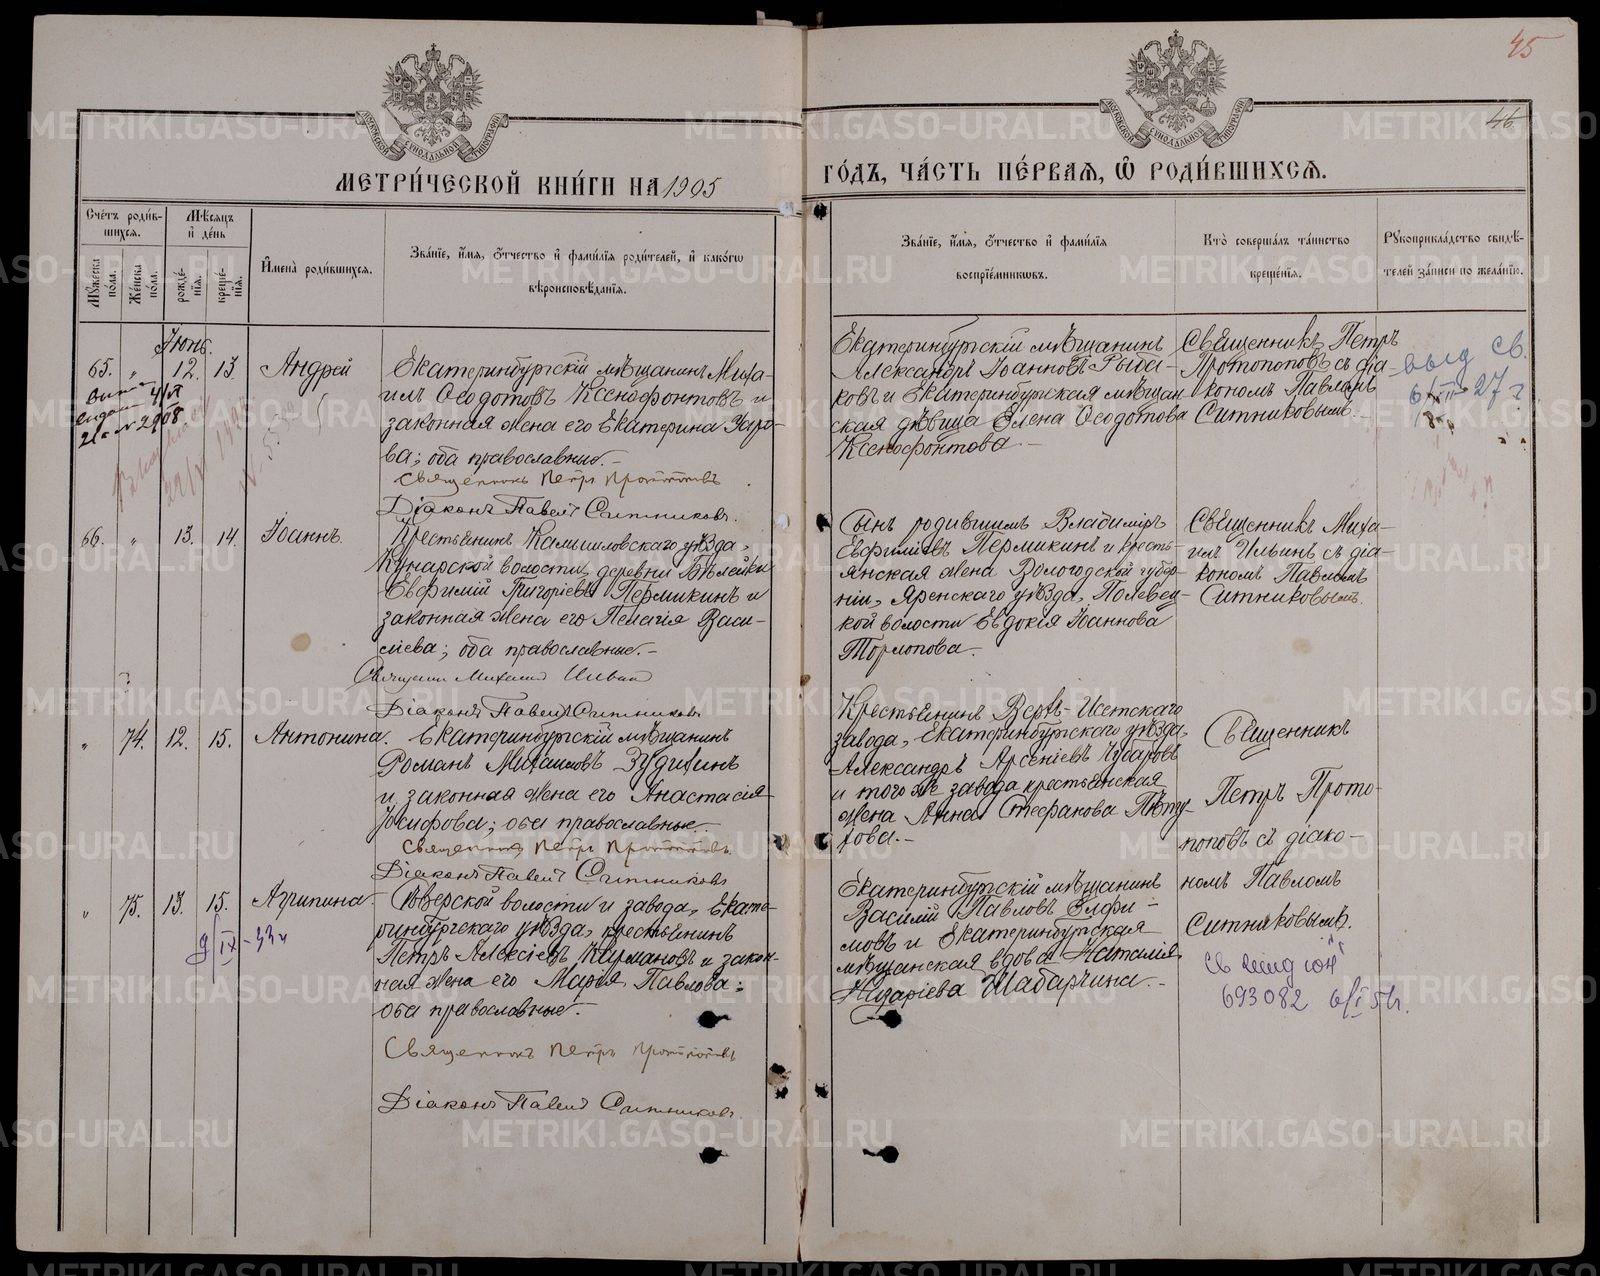 45
46
МОСКОВСКОЙ СѴНОДАЛЬНОЙ ТИПОГРАФІИ
МОСКОВСКОЙ СѴНОДАЛЬНОЙ ТИПОГРАФІИ
МЕТРИ́ЧЕСКОЙ КНИ́ГИ НА 1905
ГО́ДЪ, ЧА́СТЬ ПЕ́РВАѦ, Ѽ РОДИ́ВШИХСѦ.
Сче́тъ роди́в-
шихся.
Мꙋ́жеска по́ла.
Же́нска по́ла.
Мѣ́сяцъ
и҆ де́нь
рожде́-
нїя.
креще́-
нїя.
И҆мена̀ роди́вшихся.
Зва́нїе, и҆́мя, ѻ҆́тчество и҆ фами́лїя роди́телей, и҆ како́гѡ
вѣроисповѣ́данїя.
Зва́нїе, и҆́мя, ѻ҆́тчество и҆ фами́лїя
воспрїе́мникѡвъ.
Кто̀ соверша́лъ та́инство
креще́нїя.
Рꙋкоприкла́дство свидѣ́-
телей за́писи по жела́нїю.
Іюнь.
65. " 12. 13. Андрей
Екатеринбургскій мѣщанинъ Миха-
илъ Ѳеодотовъ Ксенофонтовъ и
законная жена его Екатерина
ва; оба православные.-
Священникъ Петръ Протопоповъ
Діаконъ Павелъ Ситниковъ.
Екатеринбургскій мѣщанинъ
Александръ Іоанновъ Рыба-
ковъ и Екатеринбургская мѣщан
ская дѣвица Елена Ѳеодотова
Ксенофонтова.-
Священникъ Петръ
Протопоповъ съ діа-
кономъ Павломъ
Ситниковымъ.
выд св.
27 г
2908
66. " 13. 14. Іоаннъ.
Крестьянинъ Камышловскаго уѣзда,
Кунарской волости, деревни Бѣлейки
Евфимій Григоріевъ Пермикинъ и
законная жена его Пелагія Васи-
ліева; оба православные.-
Священникъ Михаилъ Ильинъ
Діаконъ Павелъ Ситниковъ
Сынъ родившимъ Владиміръ
Евфиміевъ Пермикинъ и кресть-
янская жена Вологодской губер-
ніи, Яренскаго уѣзда,
кой волости Евдокія Іоаннова
Торлопова.-
Священникъ Миха-
илъ Ильинъ съ діа-
кономъ Павломъ
Ситниковымъ.
" 74. 12. 15. Антонина.
Екатеринбургскій мѣщанинъ
Романъ Михаиловъ Зудихинъ
и законная жена его Анастасія
Іосифова; оба православные.-
Священникъ Петръ Протопоповъ
Діаконъ Павелъ Ситниковъ
Крестьянинъ Верхъ-Исетскаго
завода, Екатеринбургскаго уѣзда,
Александръ Арсеніевъ Чубаровъ
и того же завода крестьянская
жена Анна Стефанова Пѣту-
хова.-
Священникъ
Петръ Прото-
поповъ съ діако-
номъ Павломъ
Ситниковымъ.
" 75. 13. 15. Агрипина.
волости и завода, Екате-
ринбургскаго уѣзда, крестьянинъ
Петръ Алексіевъ Курмановъ и закон-
ная жена его Марѳа Павлова;
оба православные.-
Священникъ Петръ Протопоповъ
Діаконъ Павелъ Ситниковъ.
Екатеринбургскій мѣщанинъ
Василій Павловъ Елфи-
мовъ и Екатеринбургская
мѣщанская вдова Наталія
Назаріева Шабарчина.-
693082 6/I 51г.
METRIKI.GASO-URAL.RU